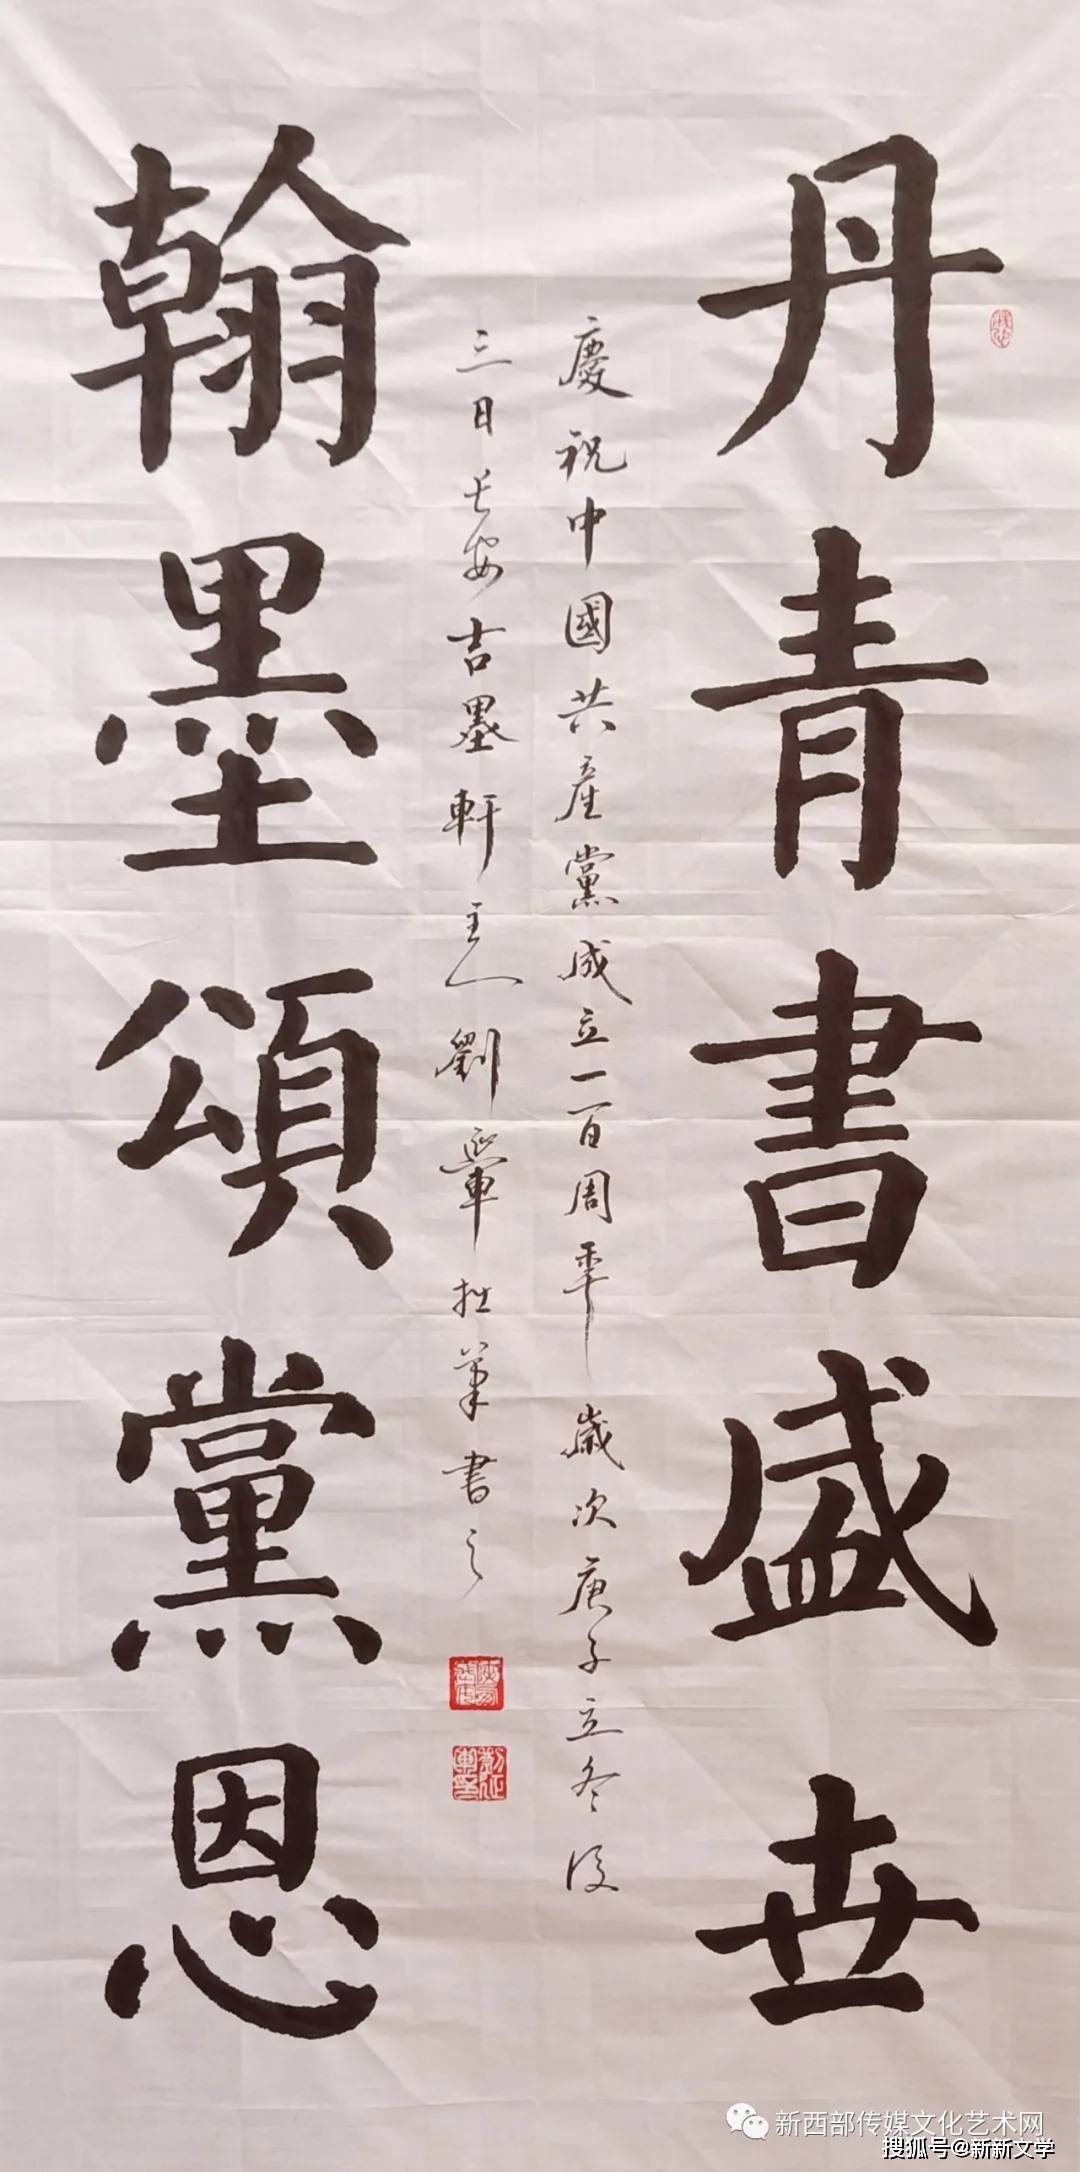 丹青書盛世
慶祝中國共産黨成立一百周年歲次庚子立冬後
三日长安吉墨軒主人劉延軍拙筆書之
翰墨頌黨恩
新西部传媒文化艺术网
搜狐号@新新文学